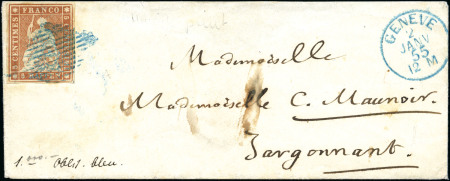 FRANCO
CENTIMES
GENEVE
2
JANV
55
12 M
Mademoiselle
Mademoiselle C. Maunoir.
Jargonnant.
Oblit. bleu.